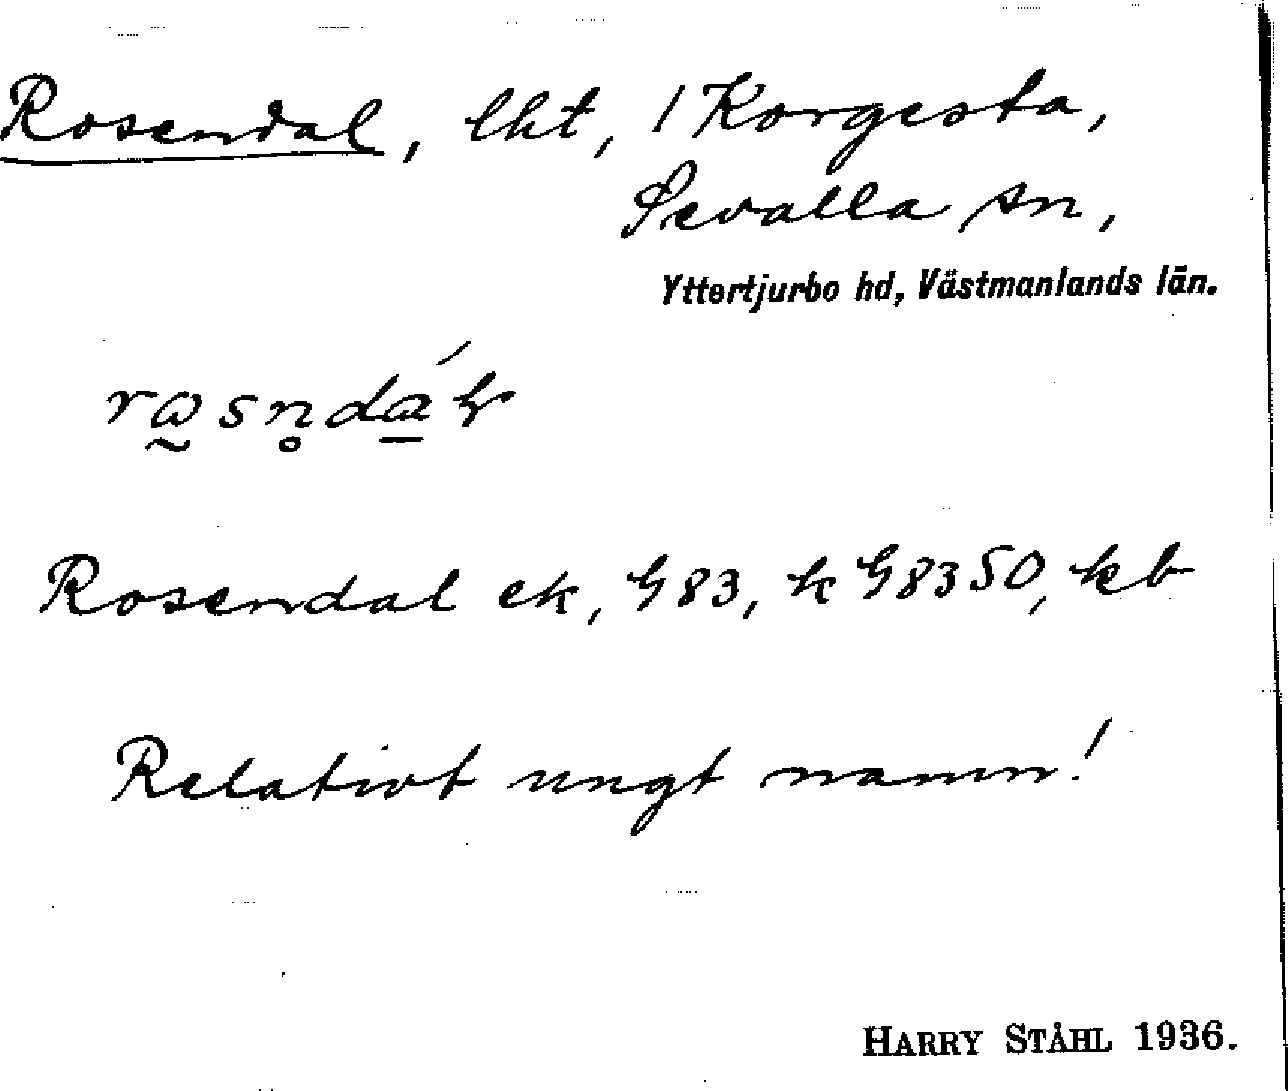 Rosendal, lht, / Korgesta,
Sevalla sn,
Yttertjurbo hd, Västmanlands län.
Rosendal ek, G83, k G8350, kb
Relativt ungt namn!
HARRY STÅHL 1936.